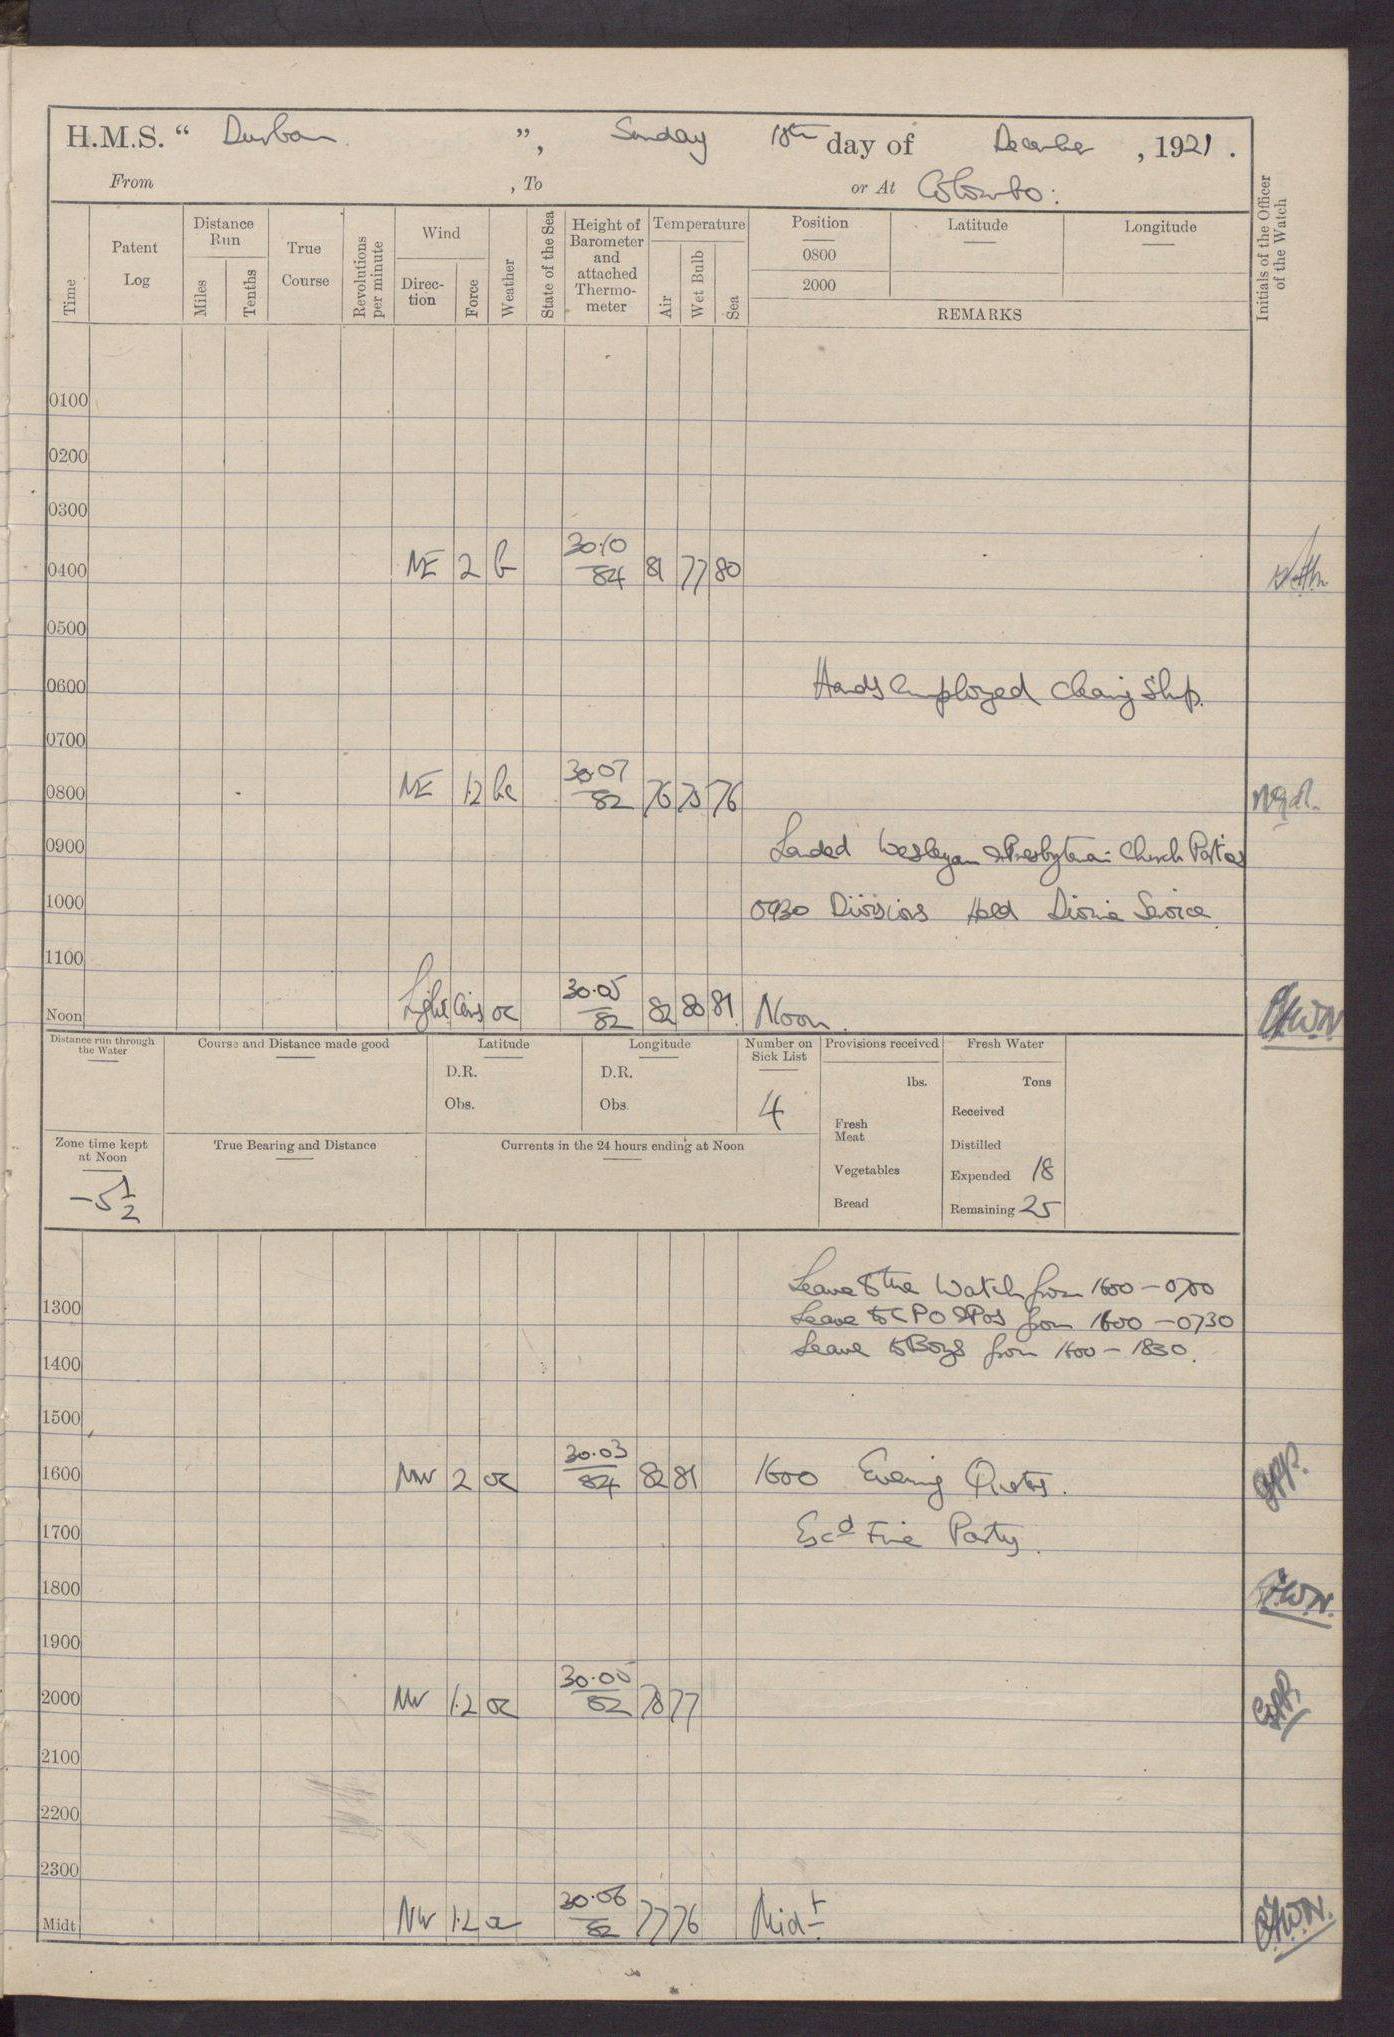 H.M.S. “ Durban ”, Sunday 18th day of December, 1921.
From , To or At Colombo:
Time
Patent Log
Distance Run
Miles
Tenths
True Course
Revolutions per minute
Wind
Direction
Force
Weather
State of the Sea
Height of Barometer and attached Thermometer
Temperature
Air
Wet Bulb
Sea
Position
0800
2000
Latitude
Longitude
REMARKS
Initials of the Officer of the Watch
0100
0200
0300
0400 NE 2 b 30.10/84 81 77 80
0500
0600 Hands employed cleaning Ship.
0700
0800 NE 1.2 bc 30.07/82 76 75 76
0900 Landed Wesleyan & Presbyterian Church Parties
1000 0930 Divisions Held Divine Service
1100
Noon Light airs oc 30.05/82 82 80 81 Noon.
Distance run through the Water
Course and Distance made good
Latitude
D.R.
Obs.
Longitude
D.R.
Obs.
Number on Sick List
4
Provisions received
lbs.
Fresh Meat
Vegetables
Bread
Fresh Water
Tons
Received
Distilled
Expended 18
Remaining 25
Zone time kept at Noon
-5 1/2
True Bearing and Distance
Currents in the 24 hours ending at Noon
Leave to the Watch from 1600 - 0700
1300 Leave to CPO & POs from 1600 - 0730
1400 Leave to Boys from 1600 - 1830.
1500
1600 NW 2 oc 30.03/84 82 81 1600 Evening Quarters.
1700 Exc'd Fire Party.
1800
1900
2000 NW 1.2 oc 30.05/82 78 77
2100
2200
2300
Midt NW 1.2 oc 30.06/82 77 76 Midt